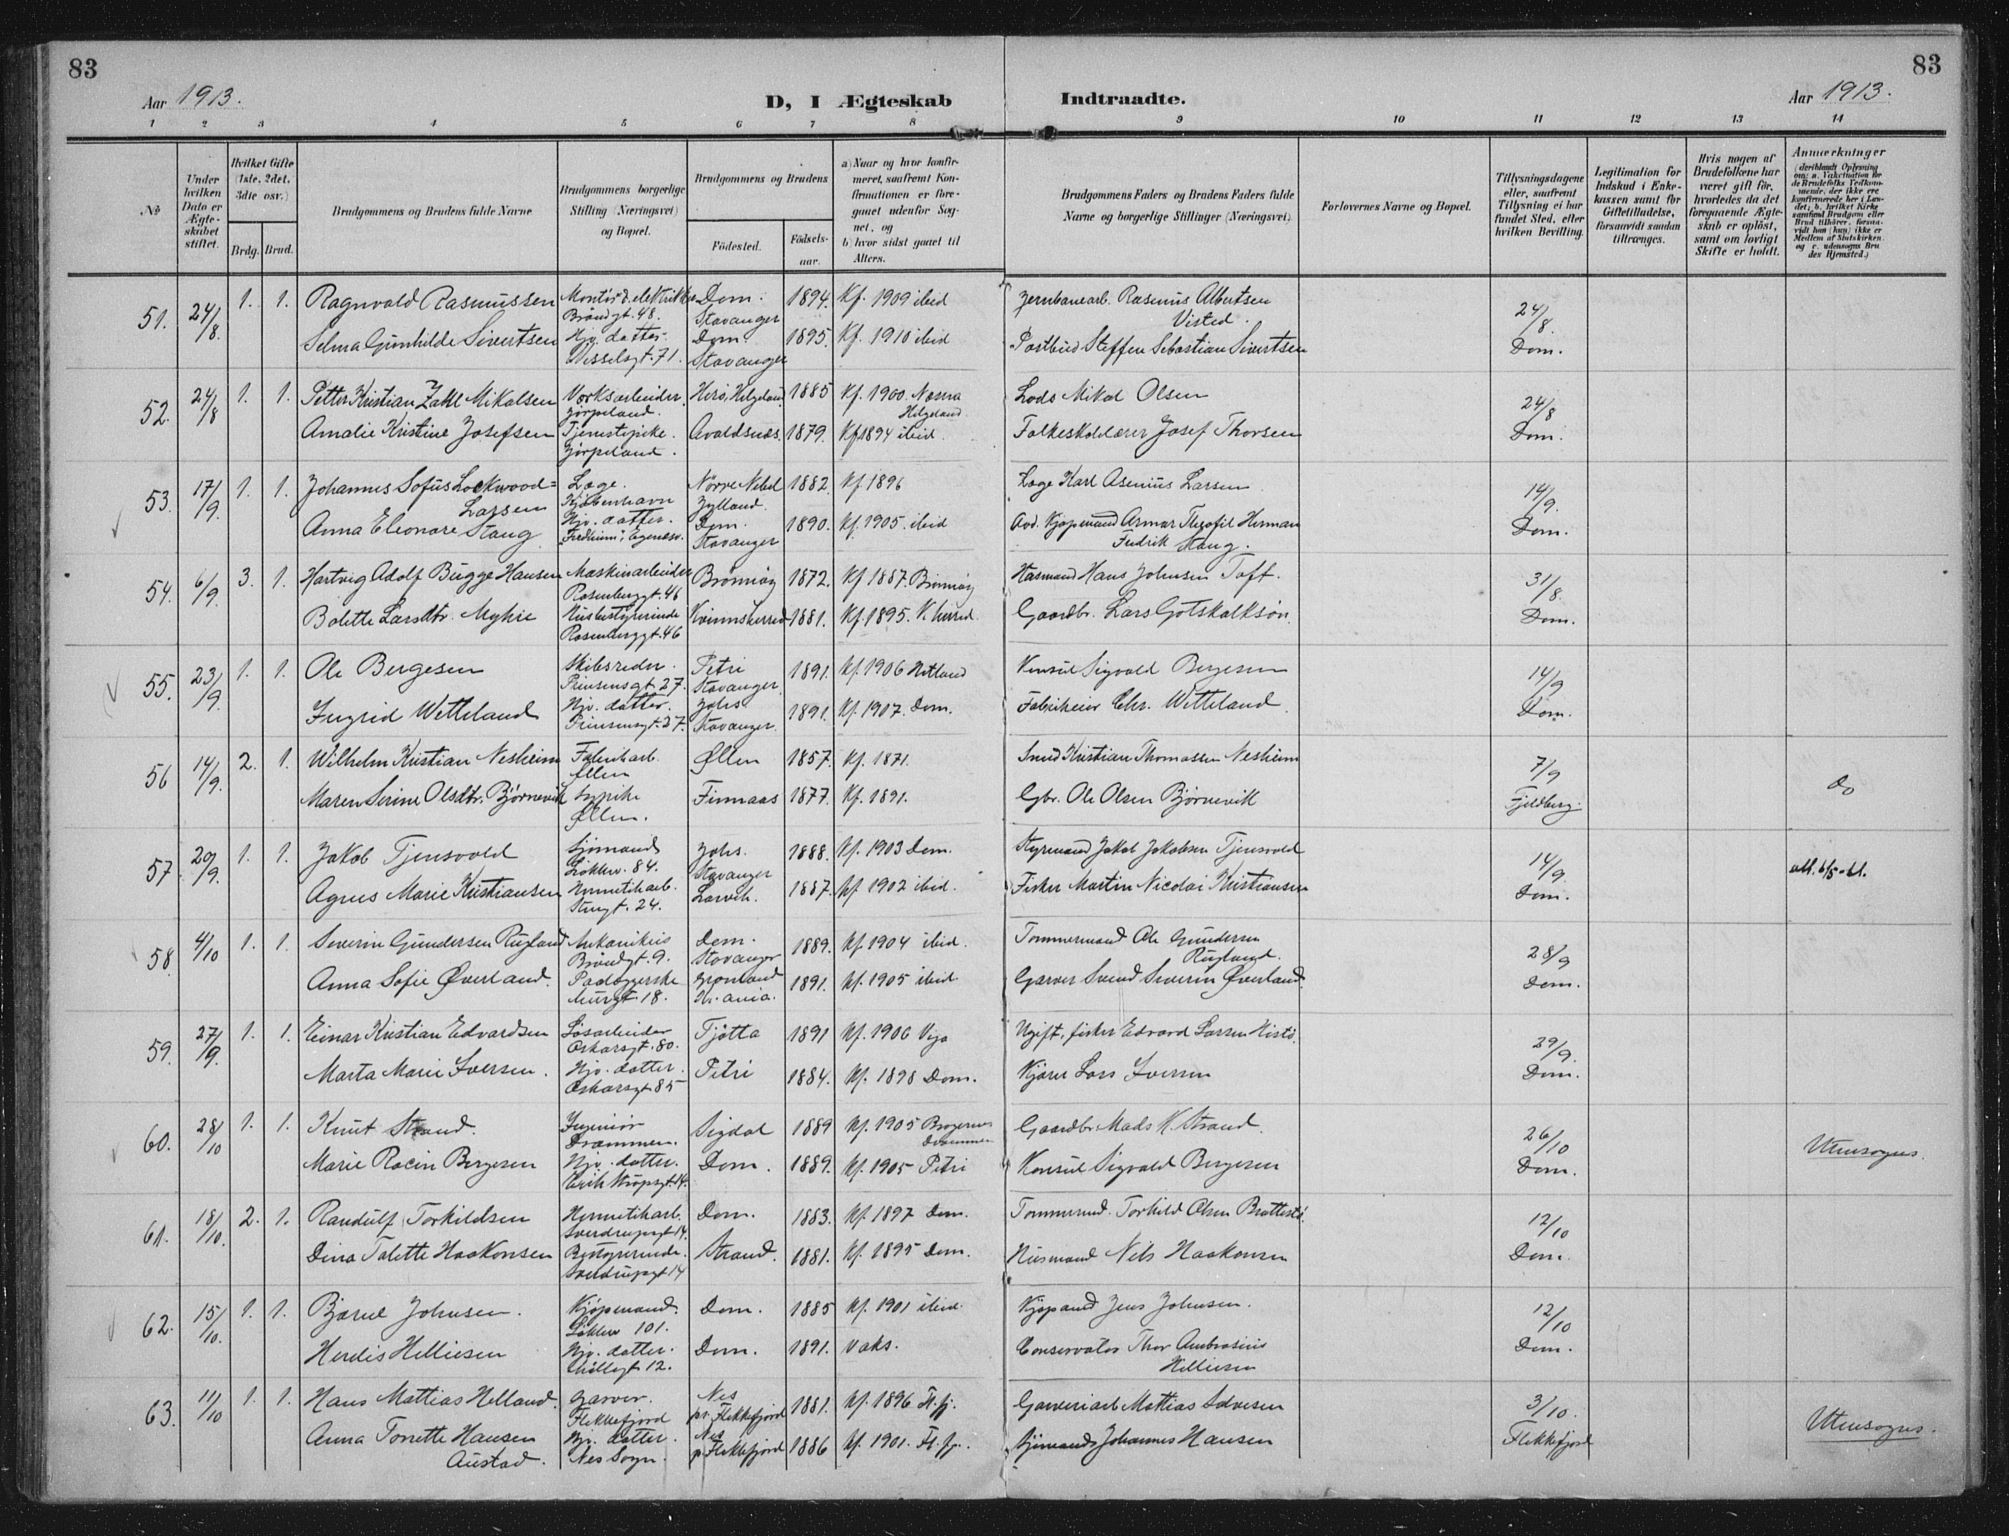 83
83
Aar 1913.
D, I Ægteskab Indtraadte.
Aar 1913.
1 2 3 4 5 6 7 8 9 10 11 12 13 14
No
Under hvilken Dato er Ægteskabet stiftet.
Hvilket Gifte (1ste, 2det, 3die osv.)
Brdg. Brud.
Brudgommens og Brudens fulde Navne
Brudgommens borgerlige Stilling (Næringsvei) og Bopæl.
Brudgommens og Brudens
Fødested.
Fødsels-aar.
a) Naar og hvor konfirmeret, saafremt Konfirmationen er foregaaet udenfor Sognet, og
b) hvor sidst gaaet til Alters.
Brudgommens Faders og Brudens Faders fulde Navne og borgerlige Stillinger (Næringsvei).
Forlovernes Navne og Bopæl.
Tillysningsdagene eller, saafremt Tillysning ei har fundet Sted, efter hvilken Bevilling.
Legitimation for Indskud i Enkekassen samt for Giftetilladelse, forsaavidt saadan tiltrænges.
Hvis nogen af Brudefolkene har været gift før, hvorledes da det foregaaende Ægteskab er opløst, samt om lovligt Skifte er holdt.
Anmærkninger
51. 24/8. 1. 1. Ragnvald Rasmussen Dom. Stavanger 1894. Kf. 1909 ibid Jernbanearb. Rasmus Albertsen Visted. 24/8. Dom.
Brøndgt. 48.
Selma Gunhilde Sivertsen Hjv. datter Nisselsgt. 71. Dom. Stavanger 1895. Kf. 1910 ibid Postbud Steffen Sebastian Sivertsen
52. 24/8 1. 1. Petter Kristian Zahl Mikalsen Verksarbeider. Jørpeland. Herø, Helgeland 1885 Kf. 1900. Nesna Helgeland Lods Mikal Olsen 24/8 Dom.
Amalie Kristine Josefsen Tjenestepike. Jørpeland. Avaldsnes. 1879. Kf 1894 ibid. Folkeskolelærer Josef Thorsen
53. 17/9. 1. 1. Johannes Sofus Lockwood-Larsen Læge. Kjøbenhavn Nørre Nebel Jylland. 1882. Kf 1896 Læge Karl Asenius Larsen 14/9. Dom.
Anna Eleonore Stang Hjv. datter. "Fredheim", Egenæsv. Dom. Stavanger 1890. Kf. 1905. ibid Avd. Kjøpmand Armar Theofil Herman Fredrik Stang.
54. 6/9. 3. 1. Hartvig Adolf Bugge Hansen Maskinarbeider Rosenberggt. 46 Brønnøy 1872. Kf 1887. Brønnøy Husmand Hans Johnsen Toft. 31/8. Dom.
Bolette Larsdtr. Myhre Husbestyrerinde Rosenberggt. 46 Kvinnsherred 1881. Kf. 1895. K. herred. Gaardbr. Lars Gotskalksøn.
55. 23/9 1. 1. Ole Bergesen Skibsreder. Prinsensgt. 27. Petri Stavanger 1891. Kf. 1906 Hetland Konsul Sigvald Bergesen 14/9 Dom.
Ingrid Wetteland Hjv. datter. Prinsensgt. 27. Johs Stavanger. 1891. Kf. 1907. Dom. Fabrikeier Chr. Wetteland
56 14/9. 2. 1. Wilhelm Kristian Nesheim Fabrikarb. Ølen Ølen 1857. Kf. 1871. Smed Kristian Thomassen Nesheim 7/9 Fjeldberg. Do
Maren Serine Olsdtr. Bjørnevik Ølen. Finnaas 1877. Kf. 1891. Gbr. Ole Olsen Bjørnevik
57. 20/9. 1. 1. Jakob Tjensvold Sjømand Løkkev. 84. Johs. Stavanger 1888. Kf. 1903 Dom. Styrmand Jakob Jakobsen Tjensvold 14/9. Dom.
Agnes Marie Kristiansen Hermetikarb. 24. Larvik. 1887. Kf 1902 ibid. Fisker Martin Nicolai Kristiansen
58. 4/10 1. 1. Severin Gundersen Rugland Mekanikus Brøndgt. 9. Dom. Stavanger 1889. Kf. 1904 ibid. Tømmermand Ole Gundersen Rugland. 28/9 Dom.
Anna Sofie Øverland. 18. Grønland Kr.ania. 1891. Kf. 1905 ibid. Garver Svend Severin Øverland.
59. 27/9. 1. 1. Einar Kristian Edvardsen Løsarbeider Oskarsgt. 80. Tjøtta 1891 Kf. 1906 Vega Ugift, fisker Edvard Larsen Kistø. 29/9. Dom.
Marta Marie Iversen. Hjv. datter. Oskarsgt 85 Petri 1884. Kf. 1898 Dom. Kjører Lars Iversen
60. 28/10 1. 1. Knut Strand. Ingeniør Drammen. Sigdal 1889 Kf. 1905 Bragernes Drammen Gaardbr. Mads K. Strand. 26/10 Dom. Utensogns.
Marie Racin Bergesen Hjv. datter. Dom. 1889. Kf. 1905 Petri Konsul Sigvald Bergesen
61. 18/10. 2. 1. Randulf Torkildsen Hermetikarb. Sverdrupsgt 14. Dom. 1883. Kf. 1897 Dom. Tømmermd. Torkild Olsen Brattestø. 12/10 Dom.
Dina Talette Haakonsen Bestyrerinde. Sverdrupsgt 14 Strand. 1881. Kf. 1895 Dom. Husmand Nils Haakonsen
62. 15/10. 1. 1. Bjarne Johnsen. Kjøpmand. Løkkev 101. Dom. 1885 Kf. 1901 ibid. Kjøpmand Jens Johnsen. 12/10 Dom.
Herdis Helliesen Hjv. datter. 12. Dom. 1891. vaks. Conservator Thor Ambrosius Helliesen
63. 11/10 1. 1. Hans Mattias Helland. Garver. Flekkefjord Nes pr. Flekkefjord 1881. Kf. 1896 Fl.fj. Garveriarb. Mattias Salvesen 3/10. Flekkefjord Utensogns.
Anna Tonette Hansen Austad. Hjv. datter. Nes Sogn. Nes p. Flekkefjord 1886 Kf. 1901. Fl.fj. Sjømand Johannes Hansen